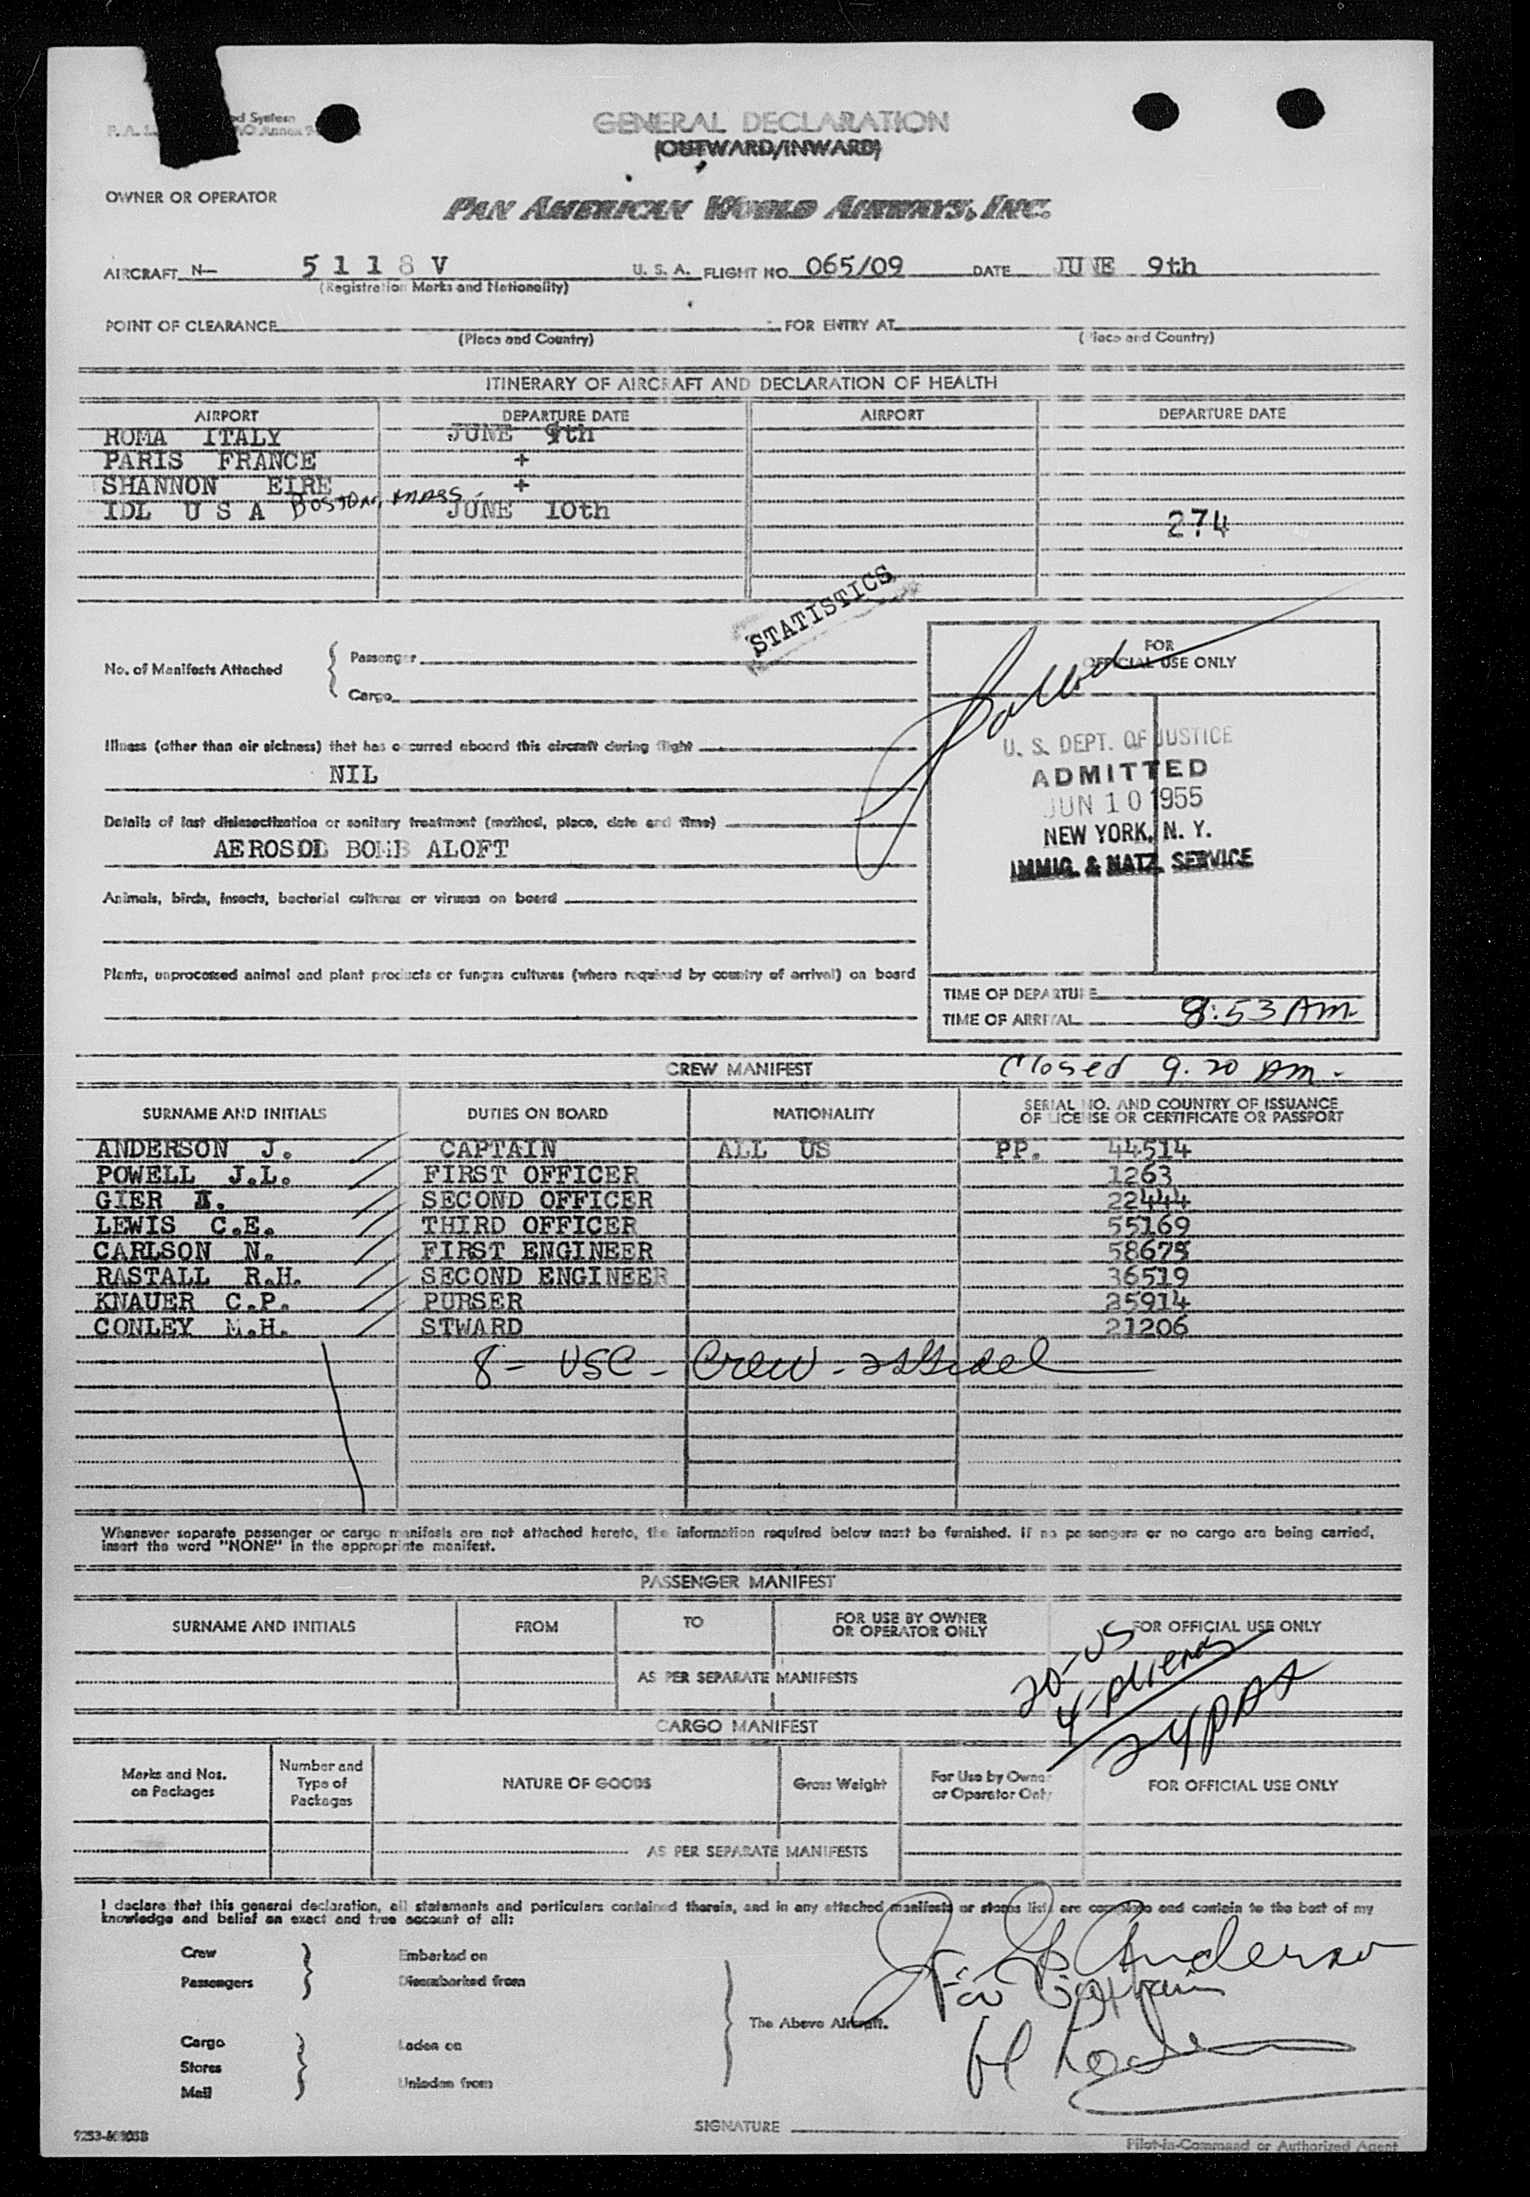 GENERAL DECLARATION
(OUTWARD/INWARD)
OWNER OR OPERATOR
PAN AMERICAN WORLD AIRWAYS, INC.
AIRCRAFT N- 5118V U. S. A. FLIGHT NO. 065/09 DATE JUNE 9th
(Registration Marks and Nationality)
POINT OF CLEARANCE FOR ENTRY AT
(Place and Country) (Place and Country)
ITINERARY OF AIRCRAFT AND DECLARATION OF HEALTH
AIRPORT DEPARTURE DATE AIRPORT DEPARTURE DATE
ROMA ITALY JUNE 9th
PARIS FRANCE +
SHANNON EIRE +
IDL U S A BOSTON, MASS. JUNE 10th
274
STATISTICS
No. of Manifests Attached
Passenger
Cargo
FOR
OFFICIAL USE ONLY
Illness (other than air sickness) that has occurred aboard this aircraft during flight
NIL
U. S. DEPT. OF JUSTICE
ADMITTED
JUN 10 1955
NEW YORK, N. Y.
IMMIG. & NATZ. SERVICE
Details of last disinsectization or sanitary treatment (method, place, date and time)
AEROSOL BOMB ALOFT
Animals, birds, insects, bacterial cultures or viruses on board
Plants, unprocessed animal and plant products or fungus cultures (where required by country of arrival) on board
TIME OF DEPARTURE
TIME OF ARRIVAL 8:53 AM
CREW MANIFEST Closed 9.20 AM.
SURNAME AND INITIALS DUTIES ON BOARD NATIONALITY SERIAL NO. AND COUNTRY OF ISSUANCE
OF LICENSE OR CERTIFICATE OR PASSPORT
ANDERSON J. CAPTAIN ALL US PP. 44514
POWELL J.L. FIRST OFFICER 1263
GIER SECOND OFFICER 22444
LEWIS C.E. THIRD OFFICER 55169
CARLSON N. FIRST ENGINEER 58675
RASTALL R.H. SECOND ENGINEER 36519
KNAUER C.P. PURSER 25914
CONLEY M.H. STWARD 21206
8 - USC - Crew -
Whenever separate passenger or cargo manifests are not attached hereto, the information required below must be furnished. If no passengers or no cargo are being carried,
insert the word "NONE" in the appropriate manifest.
PASSENGER MANIFEST
SURNAME AND INITIALS FROM TO FOR USE BY OWNER
OR OPERATOR ONLY FOR OFFICIAL USE ONLY
AS PER SEPARATE MANIFESTS
20-US
4-Aliens
24 PAX
CARGO MANIFEST
Marks and Nos.
on Packages
Number and
Type of
Packages
NATURE OF GOODS
Gross Weight
For Use by Owner
or Operator Only
FOR OFFICIAL USE ONLY
AS PER SEPARATE MANIFESTS
I declare that this general declaration, all statements and particulars contained therein, and in any attached manifests or stores lists are complete and contain to the best of my
knowledge and belief an exact and true account of all:
Crew Embarked on
Passengers Disembarked from
The Above Aircraft.
Cargo Laden on
Stores
Mail Unladen from
Anderson
For Captain
SIGNATURE
Pilot-in-Command or Authorized Agent